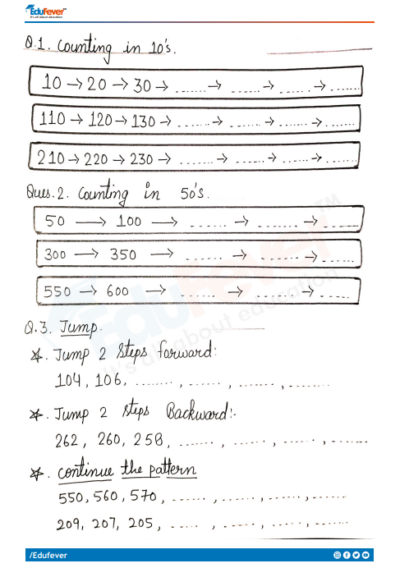 EduFever
Q.1. Counting in 10's.
10 → 20 → 30 → ....... → ...... → ...... → .......
110 → 120 → 130 → ....... → ....... → ...... → .......
210 → 220 → 230 → ....... → ...... → ...... → .......
Ques.2. Counting in 50's.
50 → 100 → ....... → ....... → .......
300 → 350 → ...... → ....... → .......
550 → 600 → ...... → ....... → ......
Q.3. Jump.
*. Jump 2 steps forward:
104, 106, ........, ......, ......., ........
*. Jump 2 steps Backward:-
262, 260, 258, ......., ......., ......, ........
*. continue the pattern
550, 560, 570, ......, ......, ......, ......
209, 207, 205, ....., ......, ......, ......
EduFever TM
It's all about education
/Edufever